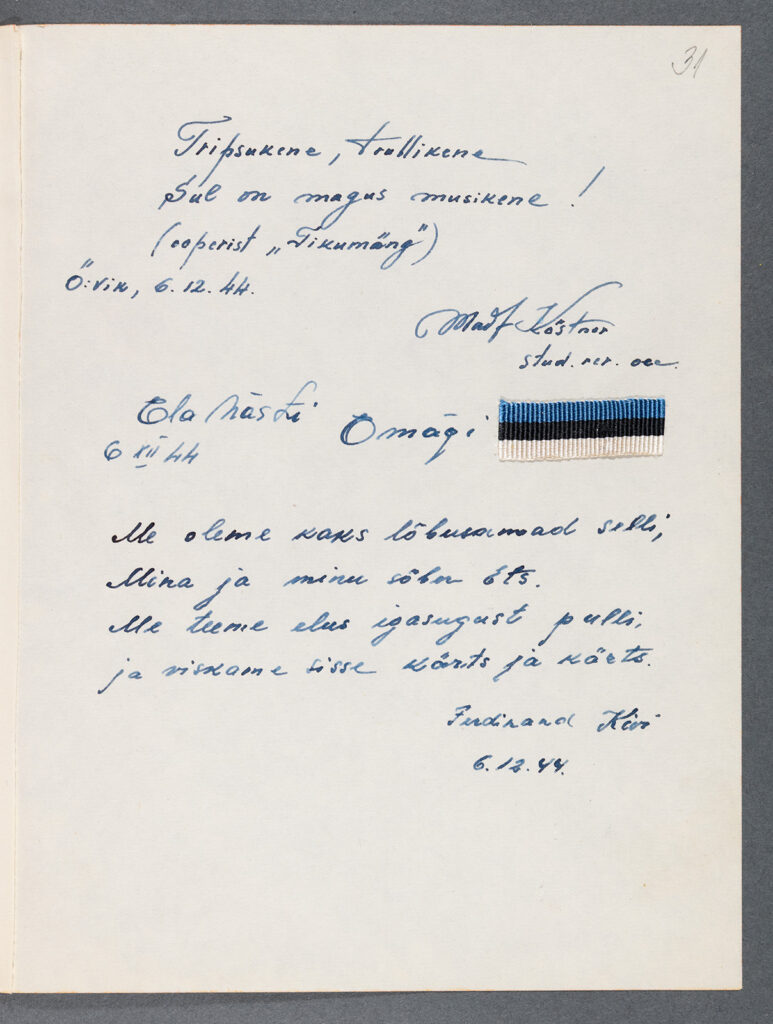 31
Tripsukene, trullikene
Sul on magus musikene!
(ooperist „Tikumäng”)
Ö:vik, 6.12.44.
Köstner
stud. rer. oec.
Ela hästi Omägi
6 XII 44
Me oleme kaks lõbusamad selli,
Mina ja minu sõber Ets.
Me teeme elus igasugust pulli,
ja viskame sisse kärts ja kärts.
Ferdinand Kivi
6.12.44.